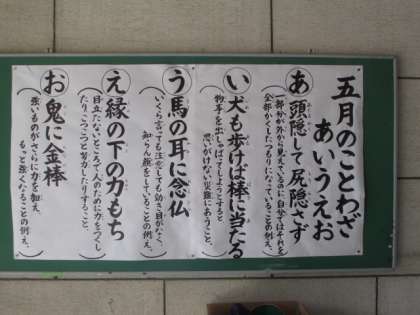 五月のことわざ
あいうえお
あ 頭隠して尻隠さず
(一部分が外から見えているのに、自分ではそれを
全部かくしたつもりになっていることの例え。)
い 犬も歩けば棒に当たる
(物事を出しゃばってしようとすると
思いがけない災難にあうこと。)
う 馬の耳に念仏
(いくら言っても注意しても効き目がなく、
知らん顔をしていることの例え。)
え 縁の下の力もち
(目立たないところで人のために力をつくし
たり、こつこつと努力したりすること。)
お 鬼に金棒
(強いものがさらに力を加え、
もっと強くなることの例え。)